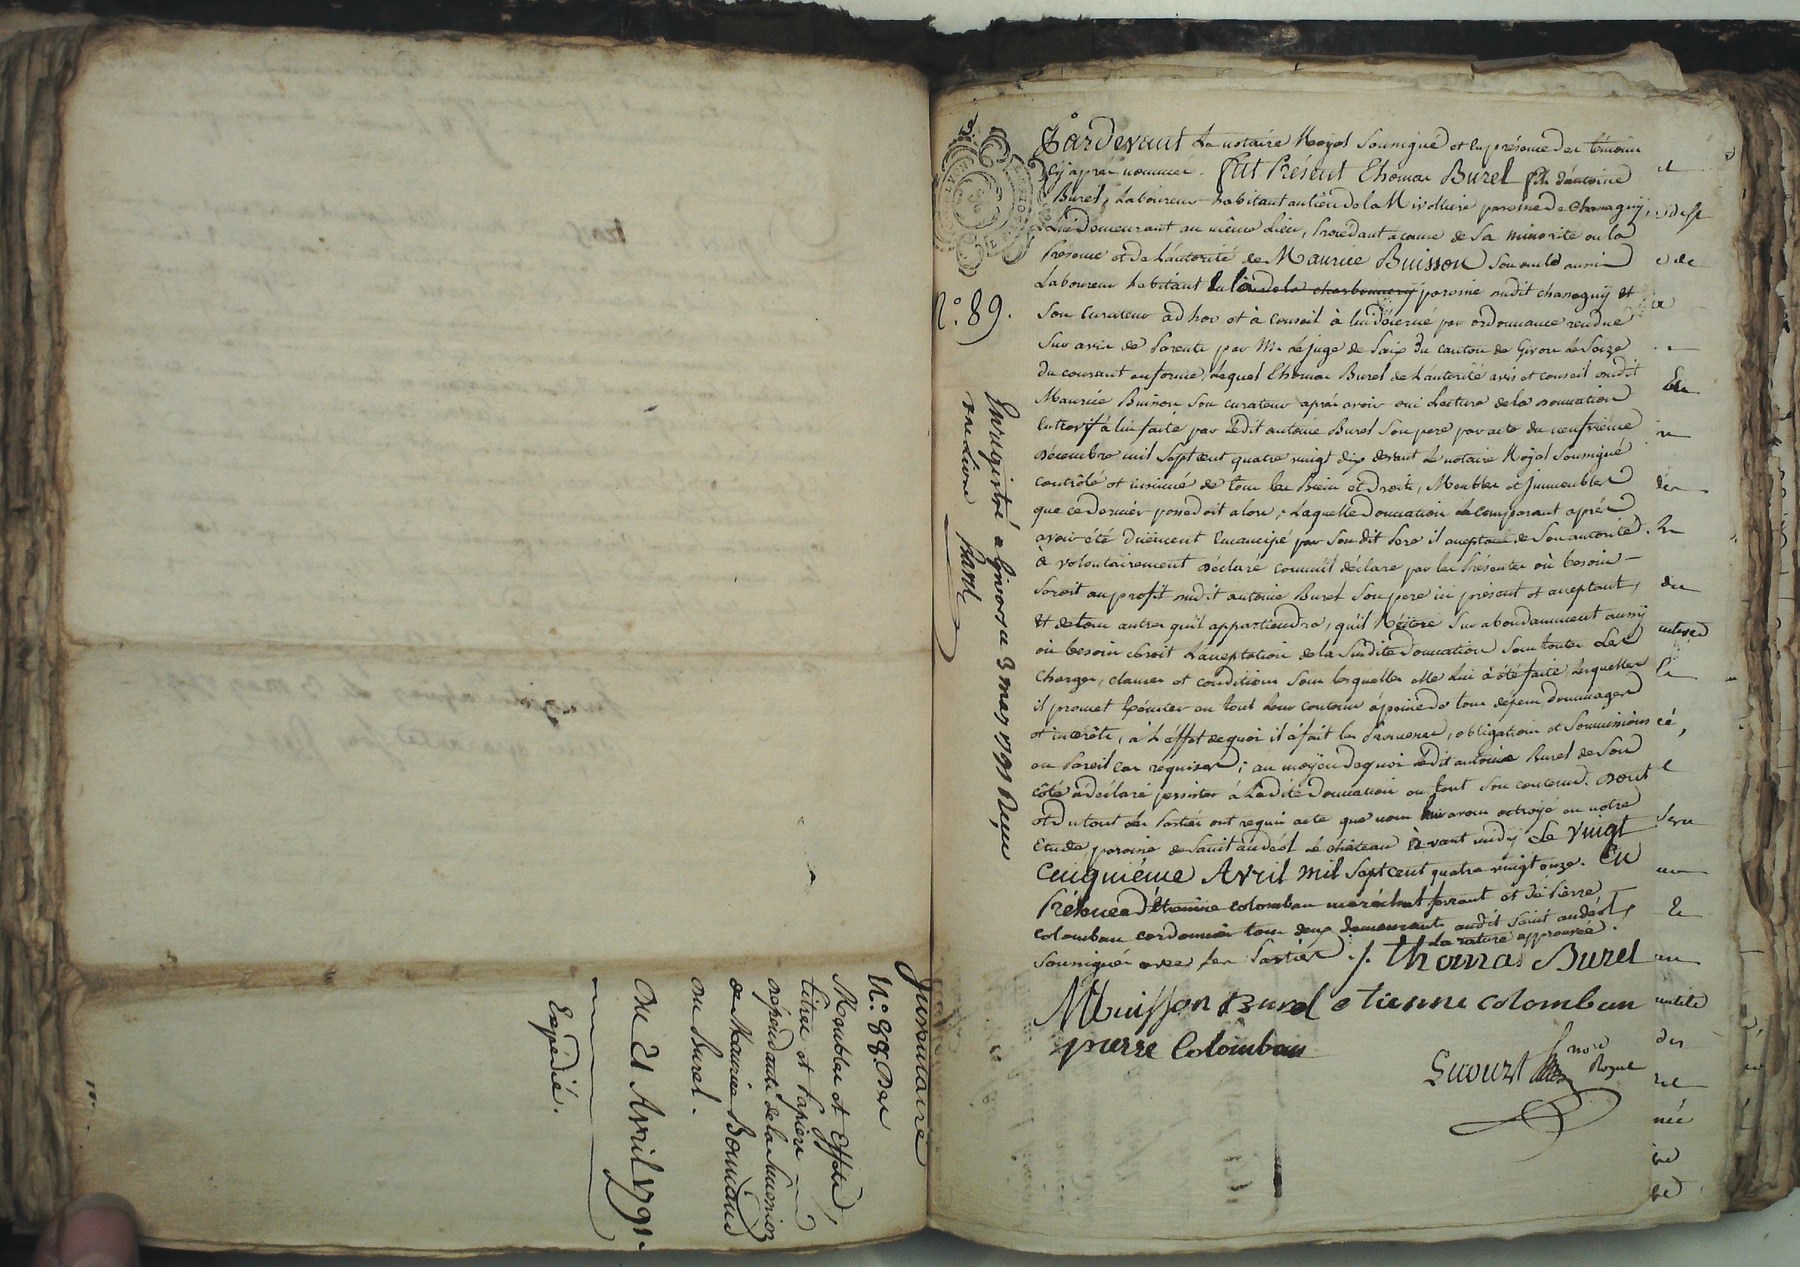 Inventaire
N.º 88. Des
Meubles et Effets,
titres et papiers
dépendants de la succession
de Maurice Bonnand
ou Burel.
Du 21 Avril 1791.
Expédié.
N.º 89.
Enregistré a Givors ce 3 may 1791 Reçu
Pardevant Le notaire Royal Soussigné et en présence des témoins
Cy après nommés. fut Présent Thomas Burel fils d'antoine
Burel, Laboureur habitant au lieu de la paroisse de Chassaguÿ,
Lui demeurant au même Lieu, Procédant a cause de Sa minorité en la
Présence et de L'autorité de Maurice Buisson Son oncle aussi
Laboureur habitant paroisse audit chassaguÿ et
Son Curateur ad hoc et à Conseil à lui décerné par ordonnance rendue
Sur avis de Parents par Mr. Le juge de Paix du canton de Givors le Seize
du courant en forme, Lequel Thomas Burel de L'autorité avis et conseil audit
Maurice Buisson Son curateur après avoir oui Lecture de la donnation
Entrevif à lui faite par ledit antoine Burel Son pere par acte du neufvième
décembre mil Sept cent quatre vingt dix devant Le notaire Royal Soussigné
contrôlé et insinué de tous les Biens et Droits, Meubles et Immeubles
que ce dernier possedoit alors, Laquelle Donnation le Comparant après
avoir été Duëment Emancipé par Son dit Pere il accepta de Son autorité,
à volontairement déclaré comm'il déclare par les Présentes où besoin
Seroit au profit audit antoine Burel Son pere ici présent et acceptant,
Et de tous autres qu'il appartiendra, qu'il Réitere Surabondamment aussÿ
où besoin Seroit L'acceptation de la Susdite Donnation Sous toutes Les
Charges, clauses et conditions Sous lesquelles elle Lui à été faite Lesquelles
il promet Exécuter en tout Leur contenu à peine de tous dépens, dommages
et interêts, à L'effet de quoi il à fait les Promesses, obligations et Soumissions
en Pareil Cas requises; au moÿen de quoi ledit antoine Burel de Son
côté à déclaré persister à Ladite Donnation en tout Son contenu. Dont
et du tout les Parties ont requis acte que nous avons octroÿé en notre
Etude, paroisse de Saint andéol Le château avant midÿ Le vingt
Cinquième Avril mil Sept cent quatre vingt onze. En
Présence d'Etienne Colomban maréchal ferrant et de Pierre
Colomban cordonnier tous deux demeurants audit Saint andéol,
La rature approuvée.
Soussignés avec les Parties. Thomas Burel
MBuisson Burel etienne colomban
pierre Colomban